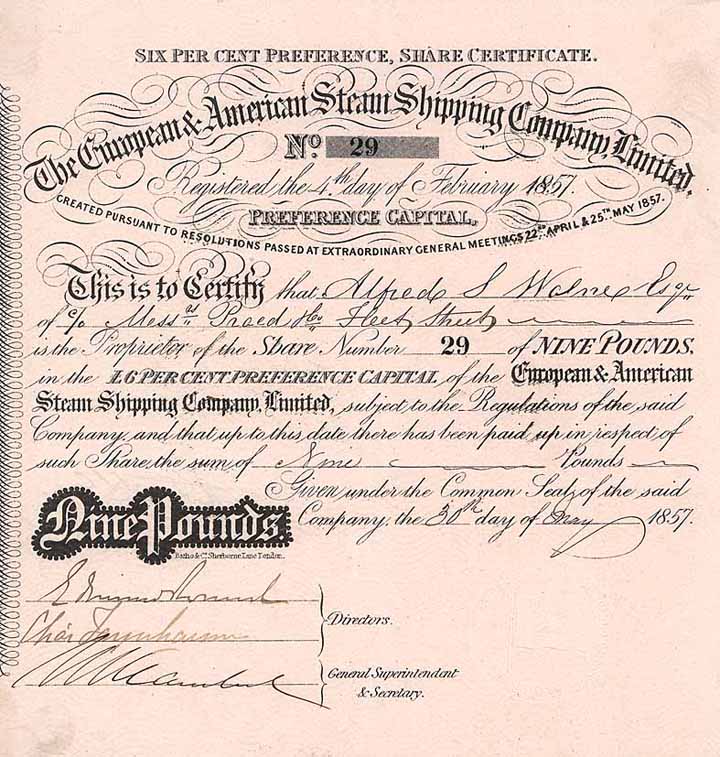 SIX PER CENT PREFERENCE, SHARE CERTIFICATE.
The European & American Steam Shipping Company, Limited.
No. 29
Registered the 4th day of February 1857.
PREFERENCE CAPITAL.
CREATED PURSUANT TO RESOLUTIONS PASSED AT EXTRAORDINARY GENERAL MEETINGS 22ND APRIL & 25TH MAY 1857.
This is to Certify that Alfred S Wolne Esqre
of c/o Messrs Praed & Co Fleet Street
is the Proprietor of the Share Number 29 of NINE POUNDS,
in the £6 PER CENT PREFERENCE CAPITAL of the European & American
Steam Shipping Company, Limited, subject to the Regulations of the said
Company, and that up to this date there has been paid up in respect of
such Share, the sum of Nine Pounds
Given under the Common Seal, of the said
Company, the 30th day of May 1857.
Nine Pounds.
Batho & Co. Sherborne Lane London.
Directors.
General Superintendent
& Secretary.